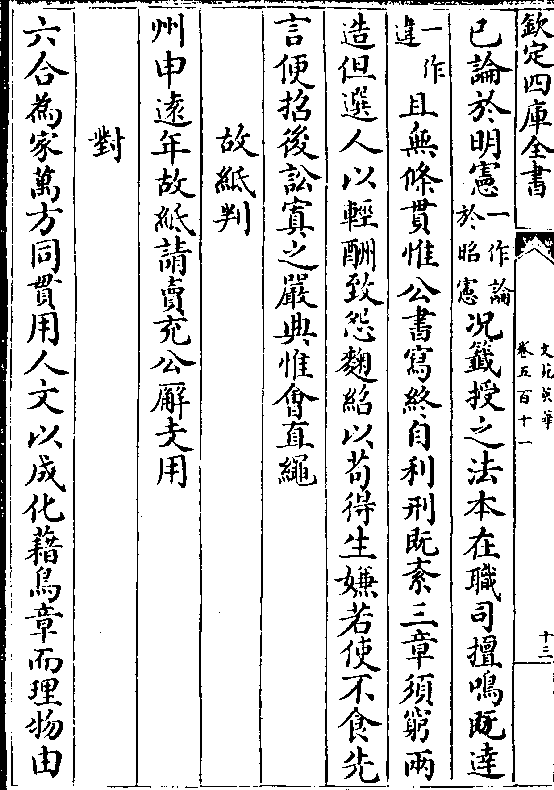 欽定四庫全書
文苑英華
卷五百十一
十三
已論於明憲一作論於昭憲況籤授之法本在職司擅鳴既達
一作違且無條貫惟公書寫終自利刑既紊三章須窮兩
造但選人以輕酬致怨麴紹以苟得生嫌若使不食先
言便招後訟寘之嚴典惟會直繩
故紙判
州申遠年故紙請賣充公廨支用
對
六合為家萬方同貫用人文以成化藉鳥章而理物由